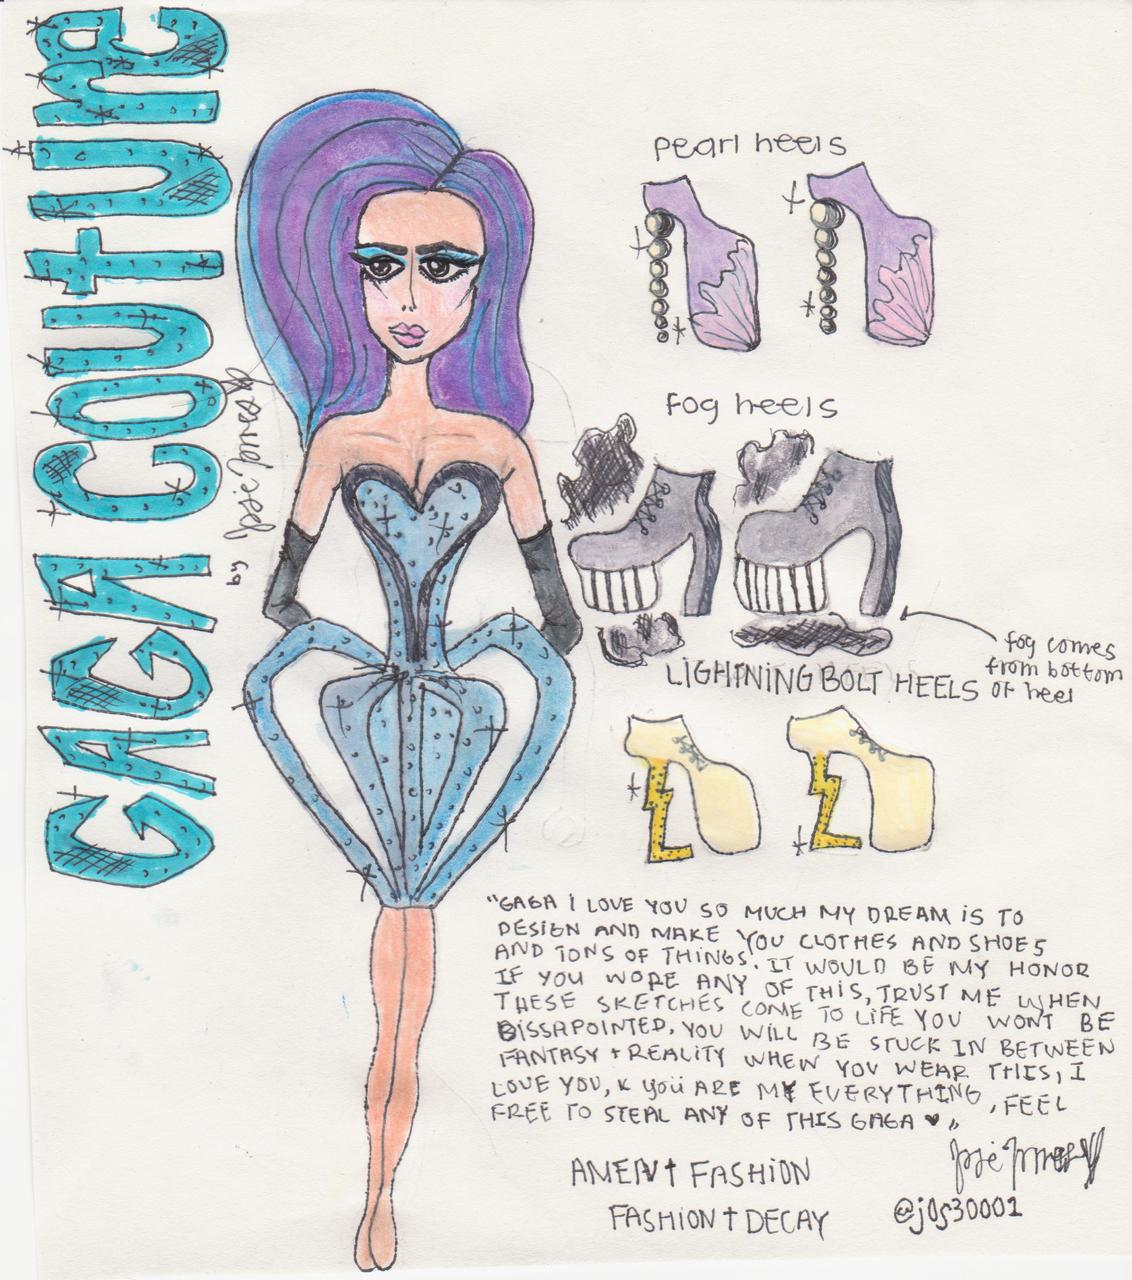 GAGA COUTURE
by José Torres
pearl heels
fog heels
fog comes
from bottom
of heel
LIGHTNING BOLT HEELS
"GAGA I LOVE YOU SO MUCH MY DREAM IS TO
DESIGN AND MAKE YOU CLOTHES AND SHOES
AND TONS OF THINGS. IT WOULD BE MY HONOR
IF YOU WORE ANY OF THIS, TRUST ME WHEN
THESE SKETCHES COME TO LIFE YOU WONT BE
DISSAPOINTED. YOU WILL BE STUCK IN BETWEEN
FANTASY + REALITY WHEN YOU WEAR THIS, I
LOVE YOU, & YOU ARE MY EVERYTHING, FEEL
FREE TO STEAL ANY OF THIS GAGA ♥ "
José Torres
AMEN † FASHION
@j0s30001
FASHION † DECAY